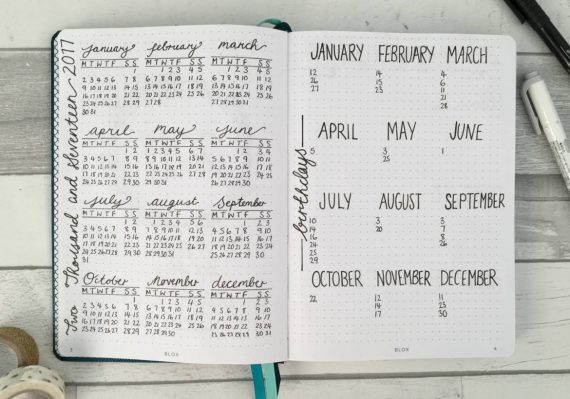 Two Thousand and Seventeen 2017
january
MTWTF SS
1
2 3 4 5 6 7 8
9 10 11 12 13 14 15
16 17 18 19 20 21 22
23 24 25 26 27 28 29
30 31
february
MTWTF SS
1 2 3 4 5
6 7 8 9 10 11 12
13 14 15 16 17 18 19
20 21 22 23 24 25 26
27 28
march
MTWTF SS
1 2 3 4 5
6 7 8 9 10 11 12
13 14 15 16 17 18 19
20 21 22 23 24 25 26
27 28 29 30 31
april
MTWTF SS
1 2
3 4 5 6 7 8 9
10 11 12 13 14 15 16
17 18 19 20 21 22 23
24 25 26 27 28 29 30
may
MTWTF SS
1 2 3 4 5 6 7
8 9 10 11 12 13 14
15 16 17 18 19 20 21
22 23 24 25 26 27 28
29 30 31
june
MTWTF SS
1 2 3 4
5 6 7 8 9 10 11
12 13 14 15 16 17 18
19 20 21 22 23 24 25
26 27 28 29 30
july
MTWTF SS
1 2
3 4 5 6 7 8 9
10 11 12 13 14 15 16
17 18 19 20 21 22 23
24 25 26 27 28 29 30
31
august
MTWTF SS
1 2 3 4 5 6
7 8 9 10 11 12 13
14 15 16 17 18 19 20
21 22 23 24 25 26 27
28 29 30 31
September
MTWTF SS
1 2 3
4 5 6 7 8 9 10
11 12 13 14 15 16 17
18 19 20 21 22 23 24
25 26 27 28 29 30
October
MTWTF SS
1
2 3 4 5 6 7 8
9 10 11 12 13 14 15
16 17 18 19 20 21 22
23 24 25 26 27 28 29
30 31
November
MTWTF SS
1 2 3 4 5
6 7 8 9 10 11 12
13 14 15 16 17 18 19
20 21 22 23 24 25 26
27 28 29 30
december
MTWTF SS
1 2 3
4 5 6 7 8 9 10
11 12 13 14 15 16 17
18 19 20 21 22 23 24
25 26 27 28 29 30 31
BLOX
birthdays
JANUARY
12
26
27
FEBRUARY
14
15
23
MARCH
4
6
11
21
28
APRIL
5
MAY
3
25
JUNE
1
JULY
10
14
16
24
25
29
AUGUST
3
20
SEPTEMBER
3
7
8
26
OCTOBER
22
NOVEMBER
12
14
17
DECEMBER
11
23
30
BLOX